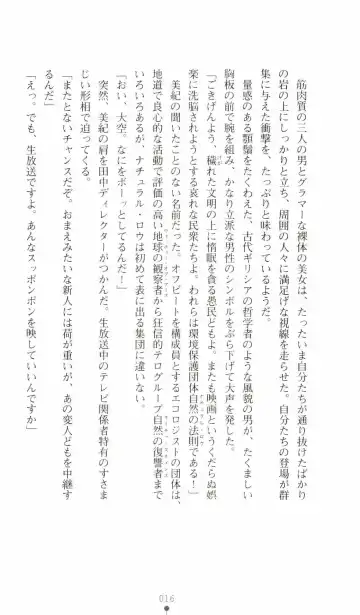 筋肉質の三人の男とグラマーな裸体の美女は、たったいま自分たちが通り抜けたばかり
の岩の上にしっかりと立ち、周囲の人々に満足げな視線を走らせた。自分たちの登場が群
集に与えた衝撃を、たっぷりと味わっているようだ。
量感のある顎鬚をたくわえた、古代ギリシアの哲学者のような風貌の男が、たくましい
胸板の前で腕を組み、かなり立派な男性のシンボルをぶら下げて大声を発した。
「ごきげんよう、穢れた文明の上に惰眠を貪る愚民どもよ。またも映画というくだらぬ娯
楽に洗脳されようとする哀れな民衆たちよ。われらは環境保護団体自然の法則である！」
美紀の聞いたことのない名前だった。オフビートを構成員とするエコロジストの団体は、
地道で良心的な活動で評価の高い地球の観察者から狂信的テログループ自然の復讐者まで
いろいろあるが、ナチュラル・ロウは初めて表に出る集団に違いない。
「おい、大空。なにをボーッとしてるんだ！」
突然、美紀の肩を田中ディレクターがつかんだ。生放送中のテレビ関係者特有のすさま
じい形相で迫ってくる。
「またとないチャンスだぞ。おまえみたいな新人には荷が重いが、あの変人どもを中継す
るんだ」
「えっ。でも、生放送ですよ。あんなスッポンポンを映していいんですか」
016